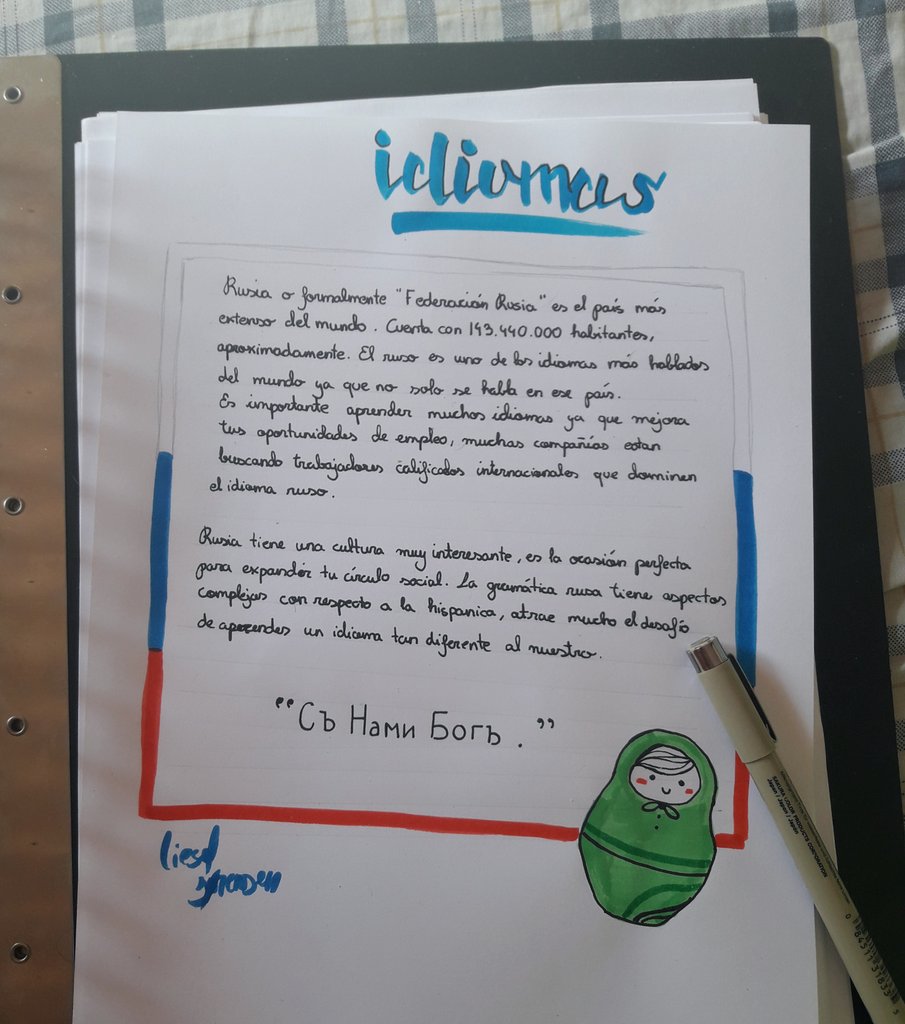 idiomas
Rusia o formalmente "Federación Rusia" es el país más
extenso del mundo. Cuenta con 143.440.000 habitantes,
aproximadamente. El ruso es uno de los idiomas más hablados
del mundo ya que no solo se habla en ese país.
Es importante aprender muchos idiomas ya que mejora
tus oportunidades de empleo, muchas compañías estan
buscando trabajadores calificados internacionales que dominen
el idioma ruso.
Rusia tiene una cultura muy interesante, es la ocasión perfecta
para expandir tu círculo social. La gramática rusa tiene aspectos
complejos con respecto a la hispanica, atrae mucho el desafío
de aprender un idioma tan diferente al nuestro.
"Съ Нами Богъ."
SAKURA COLOR PRODUCTS CORPORATION
Japan / Japon / Japan
0 84511 31833 5